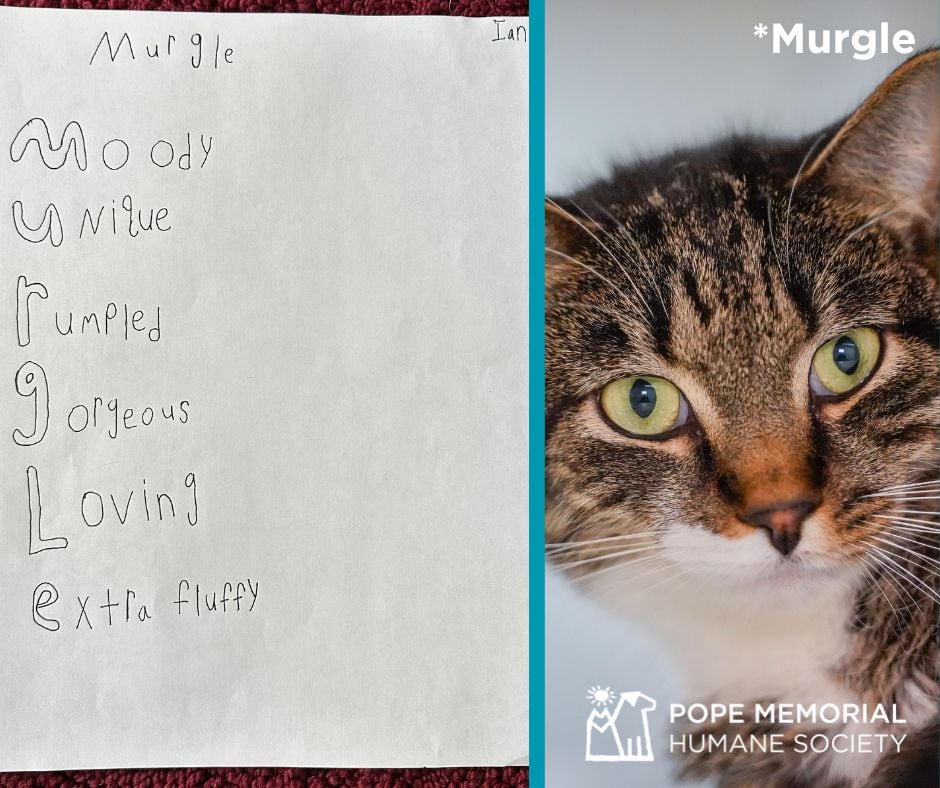 Ian
Murgle
Moody
unique
rumpled
gorgeous
Loving
extra fluffy
*Murgle
POPE MEMORIAL
HUMANE SOCIETY